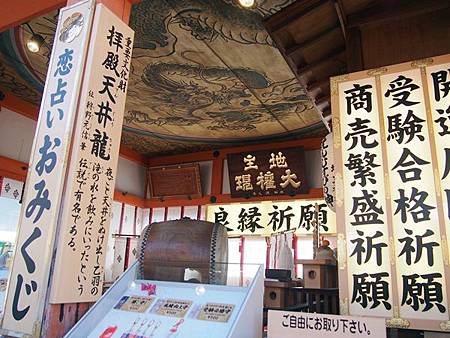 恋占いおみくじ
重要文化財
拝殿天井龍
伝 狩野元信筆
夜ごと天井をぬけ出し乙羽の
滝の水を飲みにいったという
伝説で有名である。
地主
大権現
良縁祈願
商売繁盛祈願
受験合格祈願
開運
ご自由にお取り下さい。